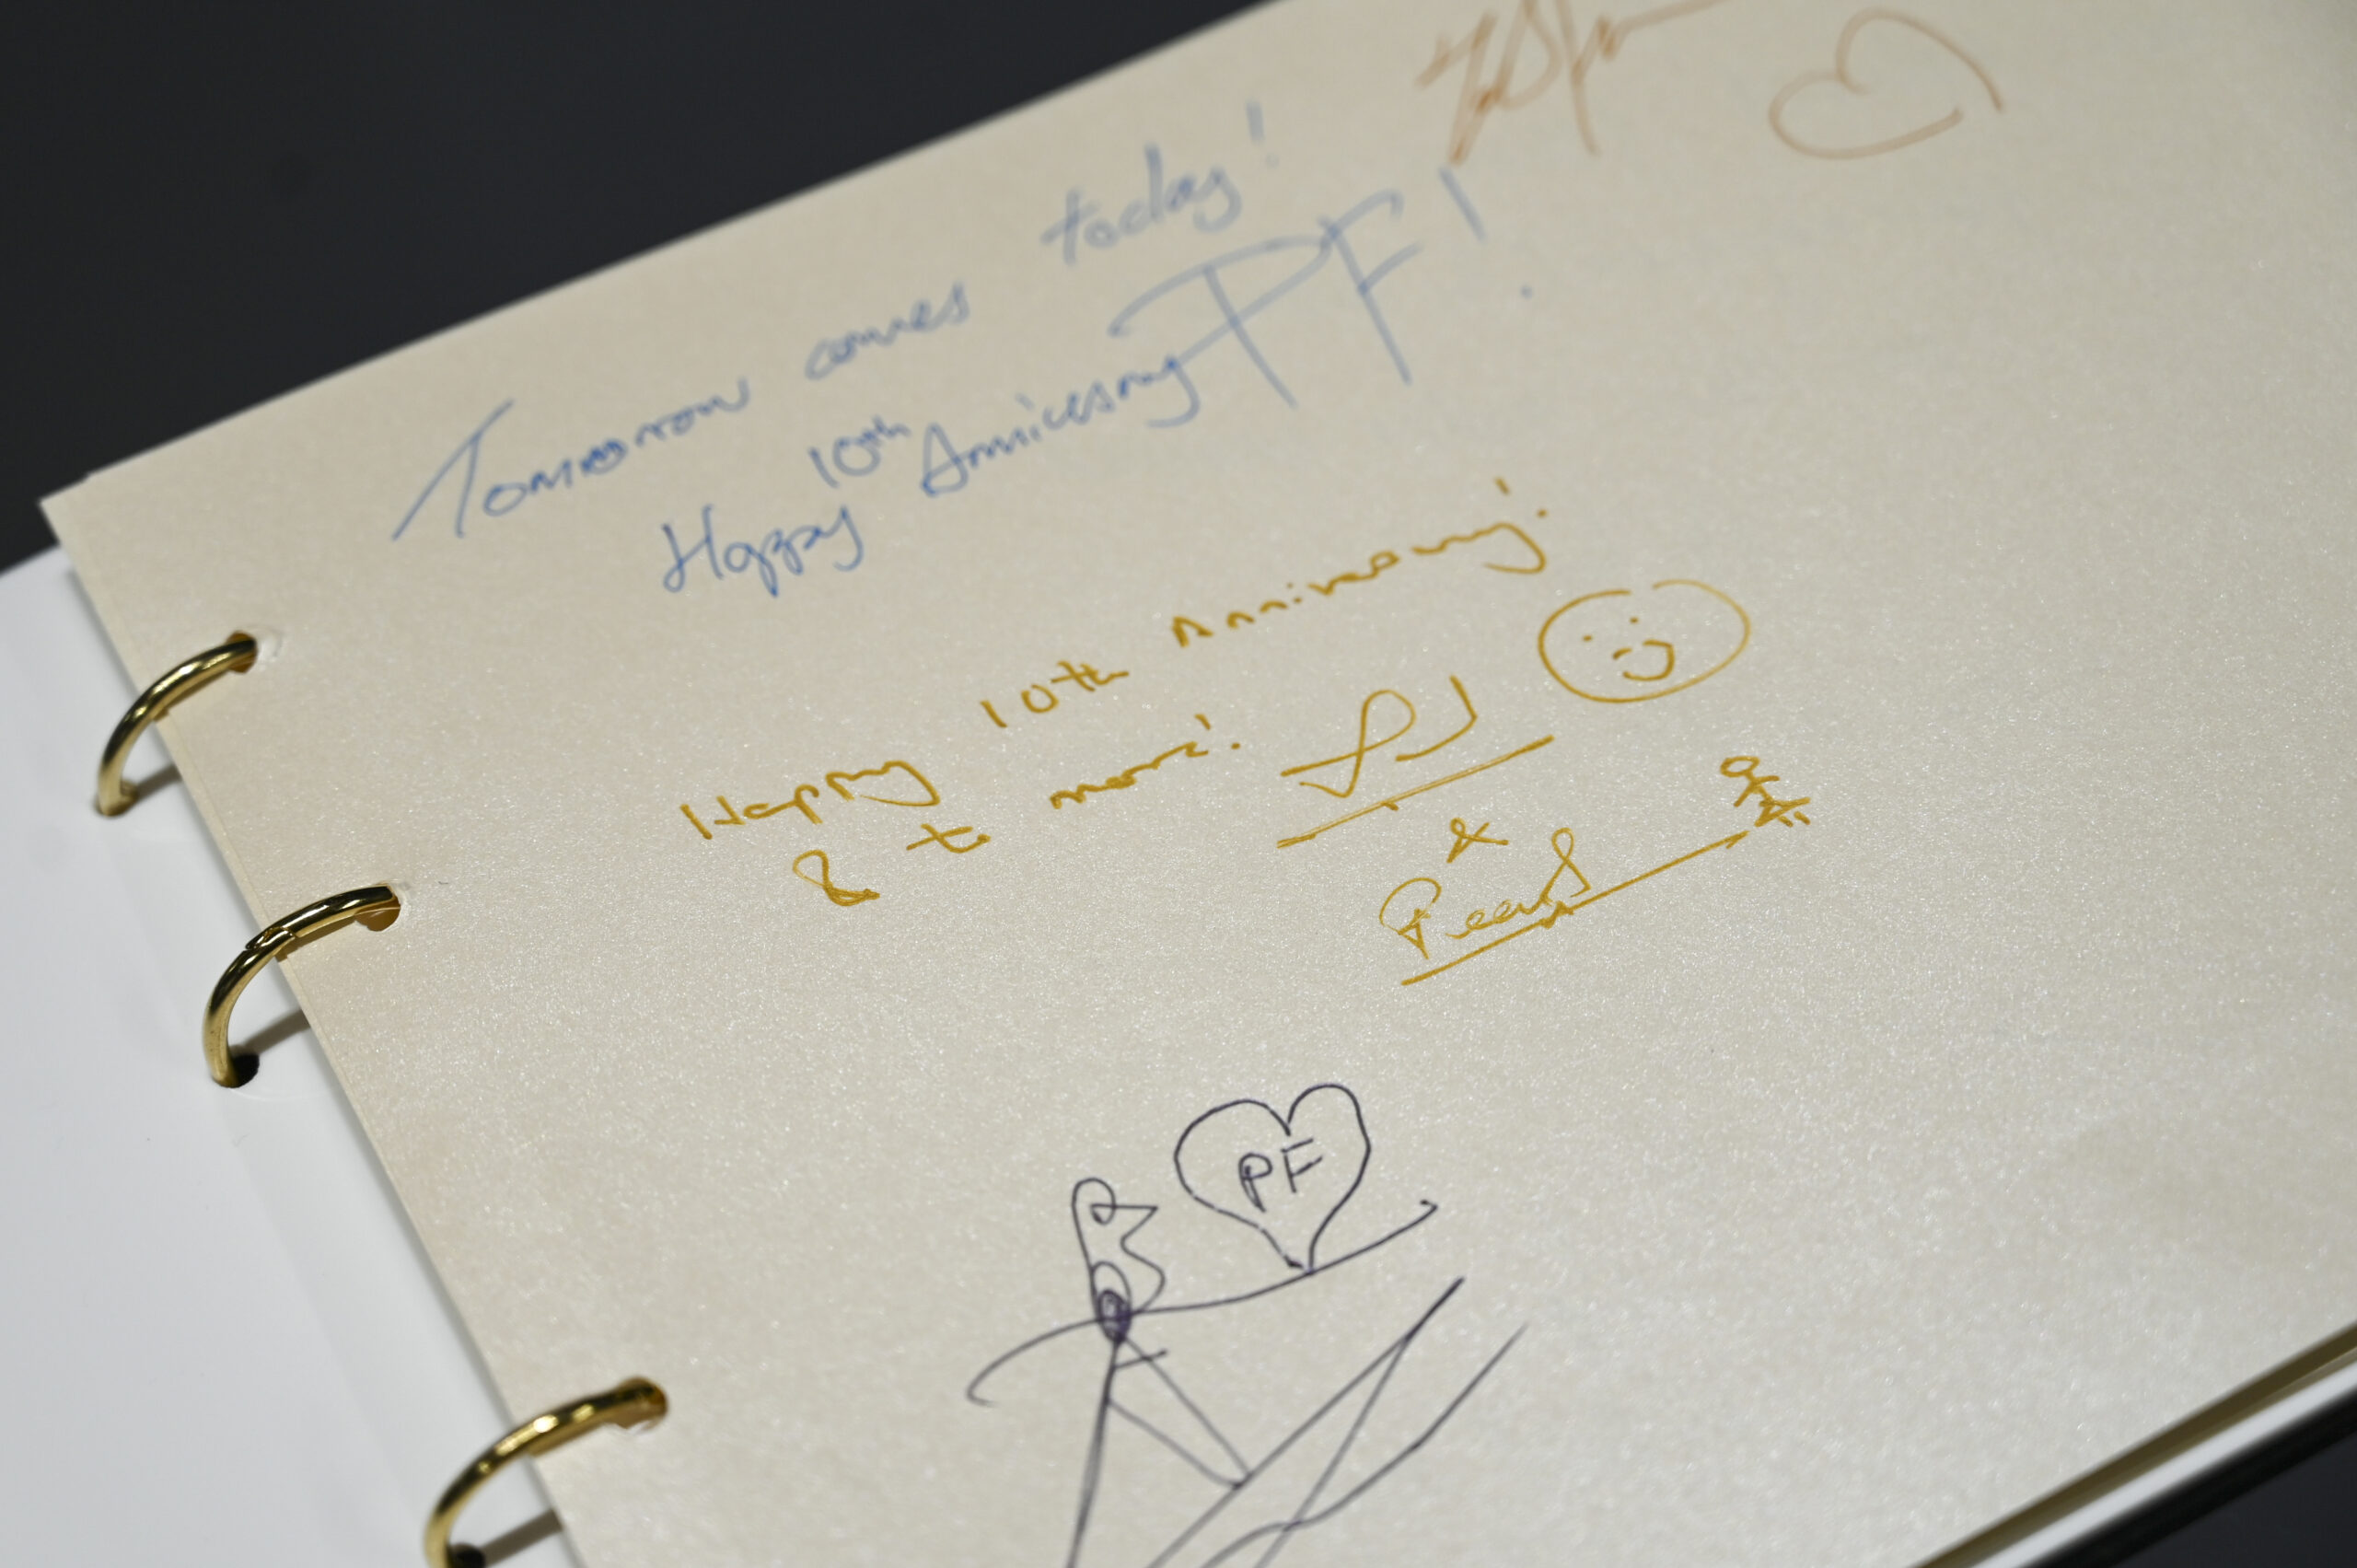 Tomorrow comes today!
Happy 10th Anniversary PF!
Happy 10th Anniversary!
& to more!
&
Pearl
PF